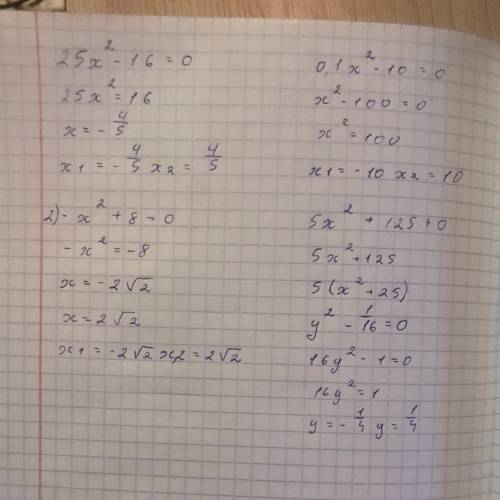 25x² - 16 = 0
25x² = 16
x = - 4/5
x1 = - 4/5 x2 = 4/5
2) - x² + 8 = 0
- x² = -8
x = -2√2
x = 2√2
x1 = -2√2 x2 = 2√2
0,1x² - 10 = 0
x² - 100 = 0
x² = 100
x1 = -10 x2 = 10
5x² + 125 + 0
5x² + 125
5(x² + 25)
y² - 1/16 = 0
16y² - 1 = 0
16y² = 1
y = - 1/4 y = 1/4